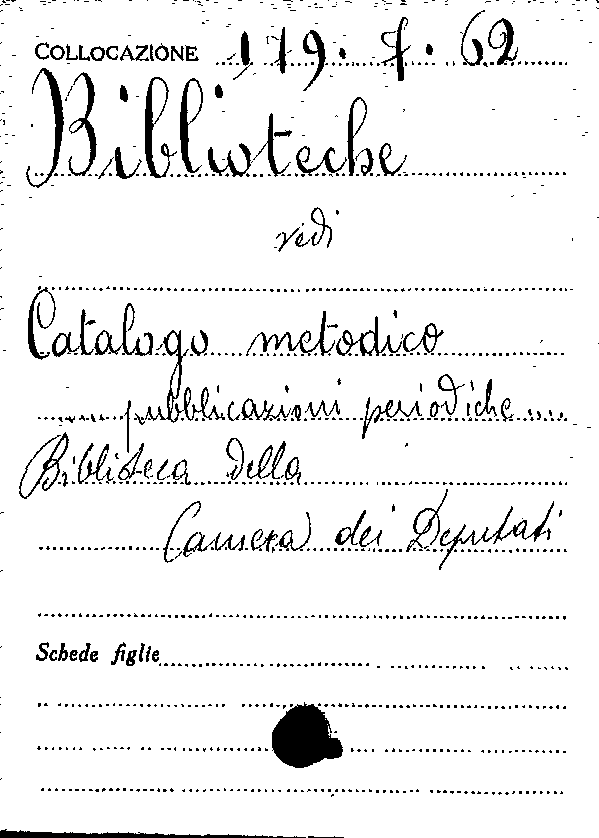 COLLOCAZIONE 179. 7. 62
Biblioteche
vedi
Catalogo metodico
.... pubblicazioni periodiche ....
Biblioteca della
Camera dei Deputati
Schede figlie